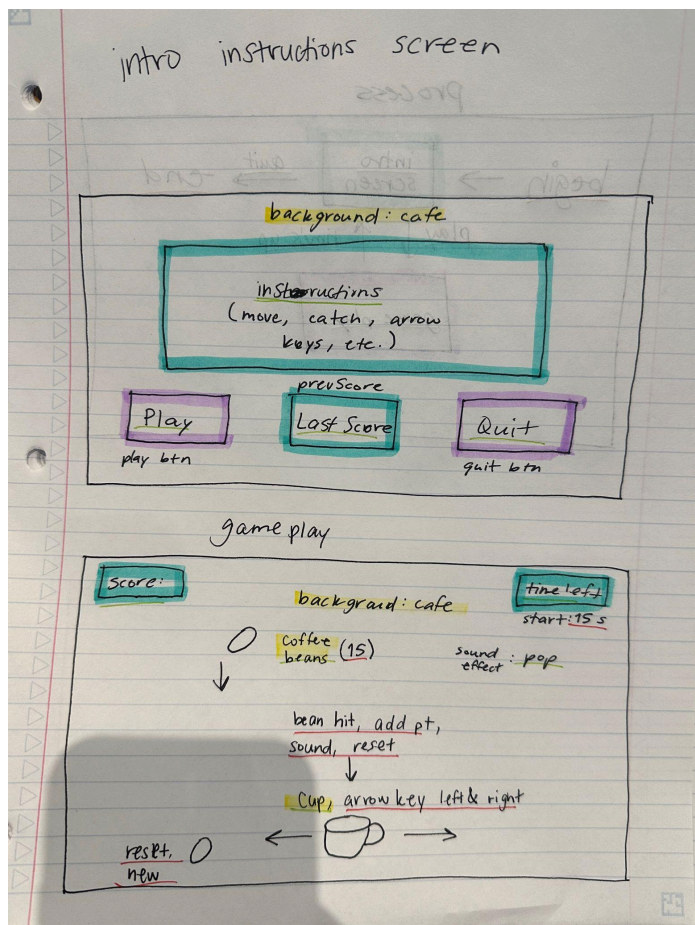 intro instructions screen
process
begin → intro screen → quit → end
play
background: cafe
instructions
(move, catch, arrow
keys, etc.)
prevScore
Play
Last Score
Quit
play btn
quit btn
game play
score:
time left
background: cafe
start: 15 s
coffee
beans (15)
sound
effect : pop
bean hit, add pt,
sound, reset
cup, arrow key left & right
reset,
new